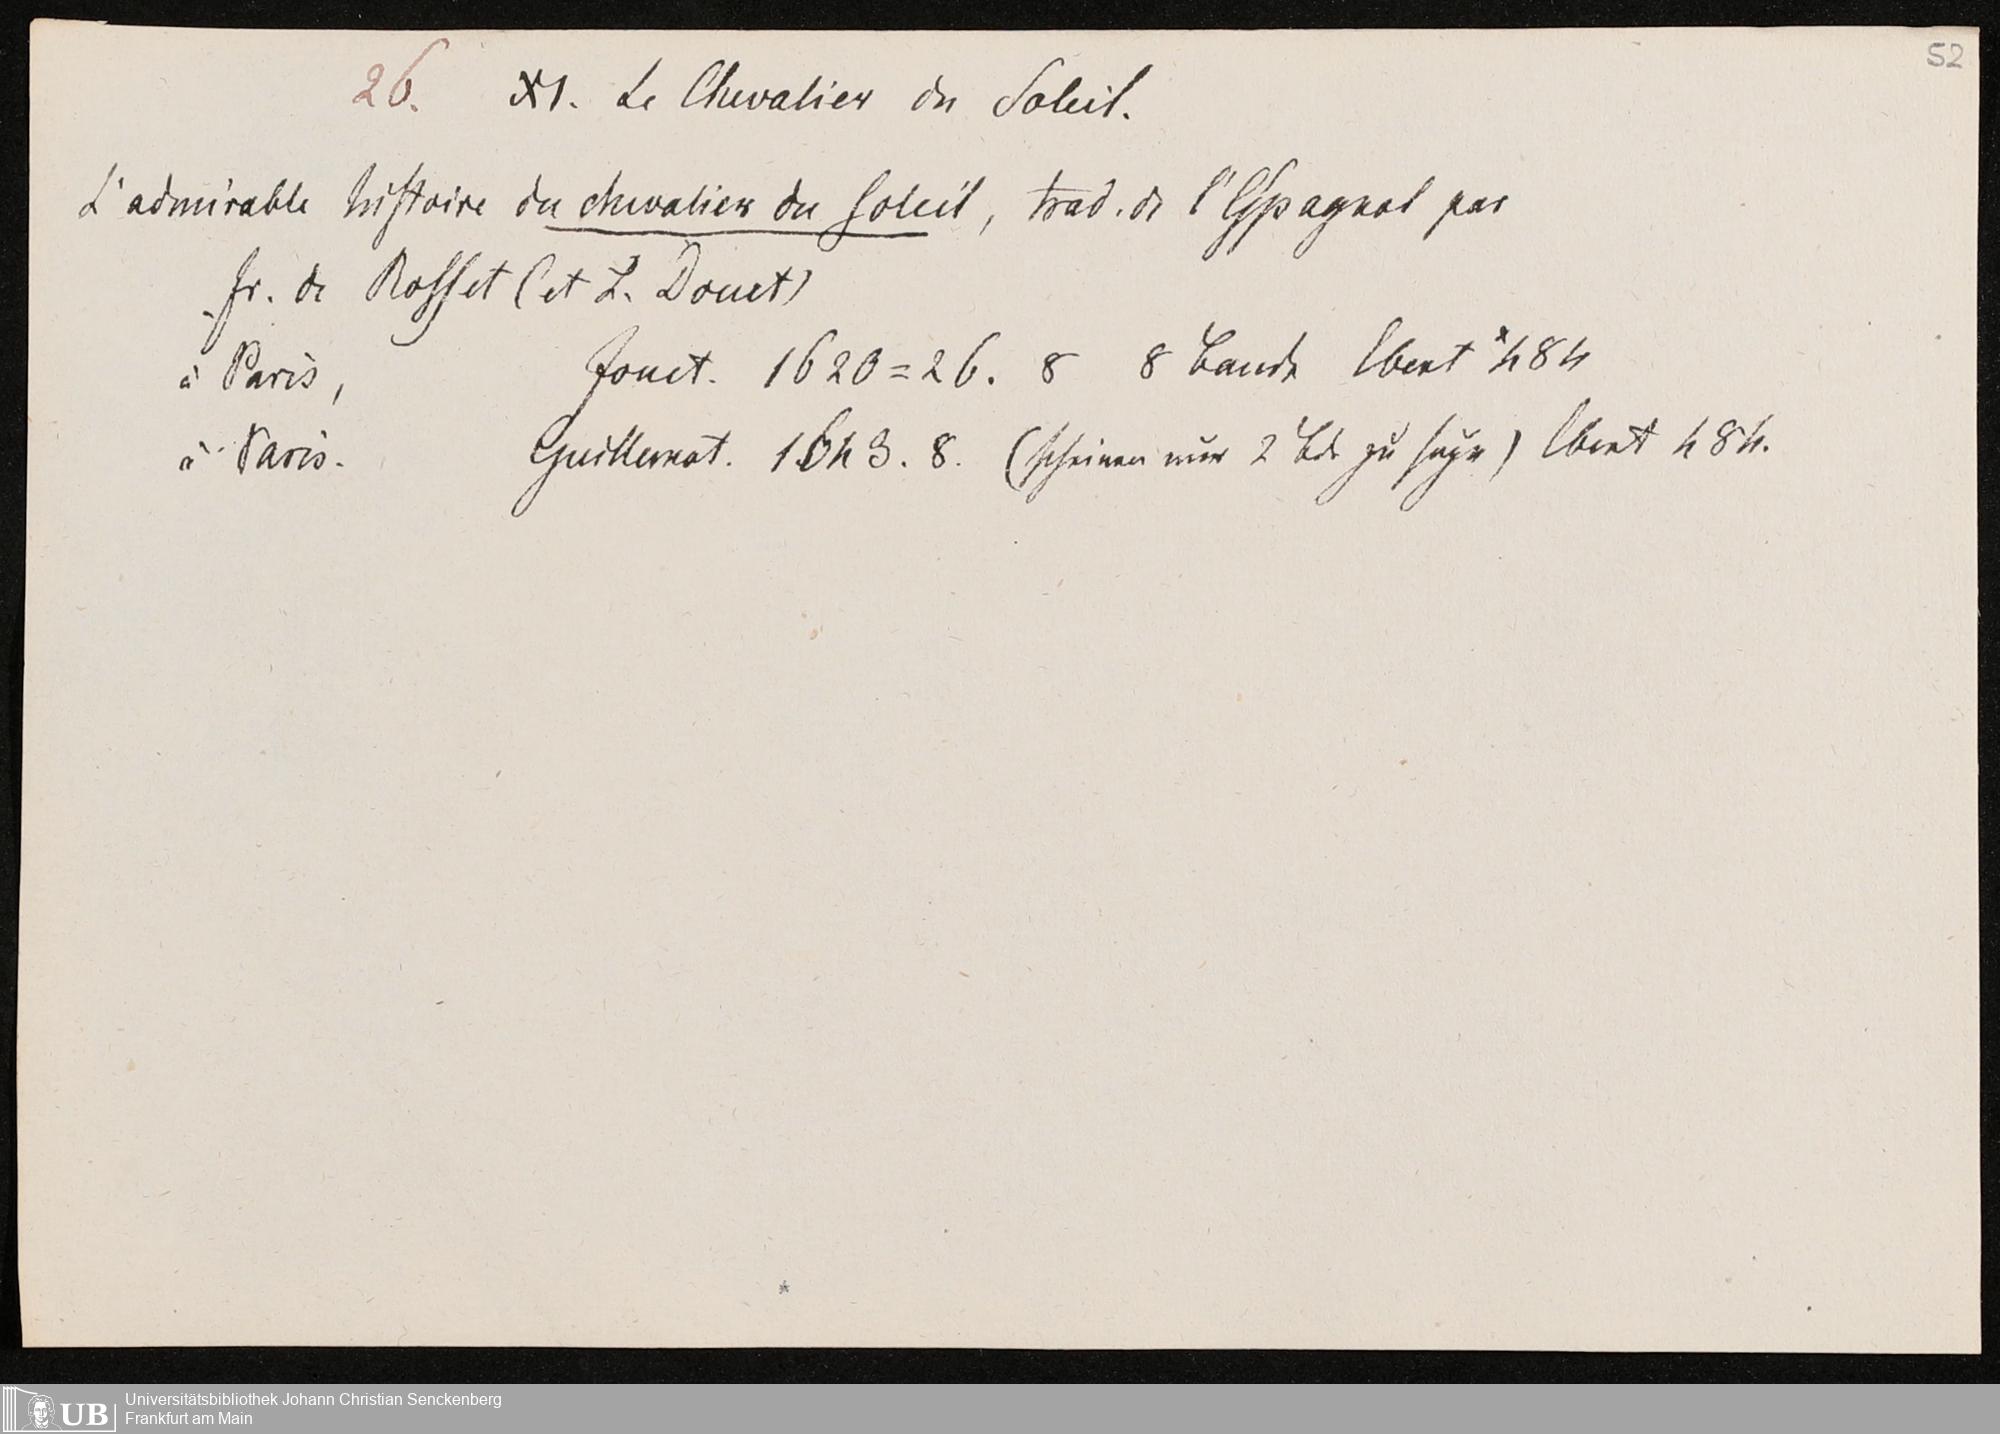 52
26. XI. Le Chevalier du Soleil.
L'admirable histoire du chevalier du Soleil, trad. de l'Espagnol par
Fr. de Rosset (et L. Douet)
à Paris, Fouet. 1620=26. 8 8 Bande Ebert 484
à Paris. Guillemot. 1643. 8. (scheinen nur 2 Bde zu seyn) Ebert 484.
*
Universitätsbibliothek Johann Christian Senckenberg
UB Frankfurt am Main